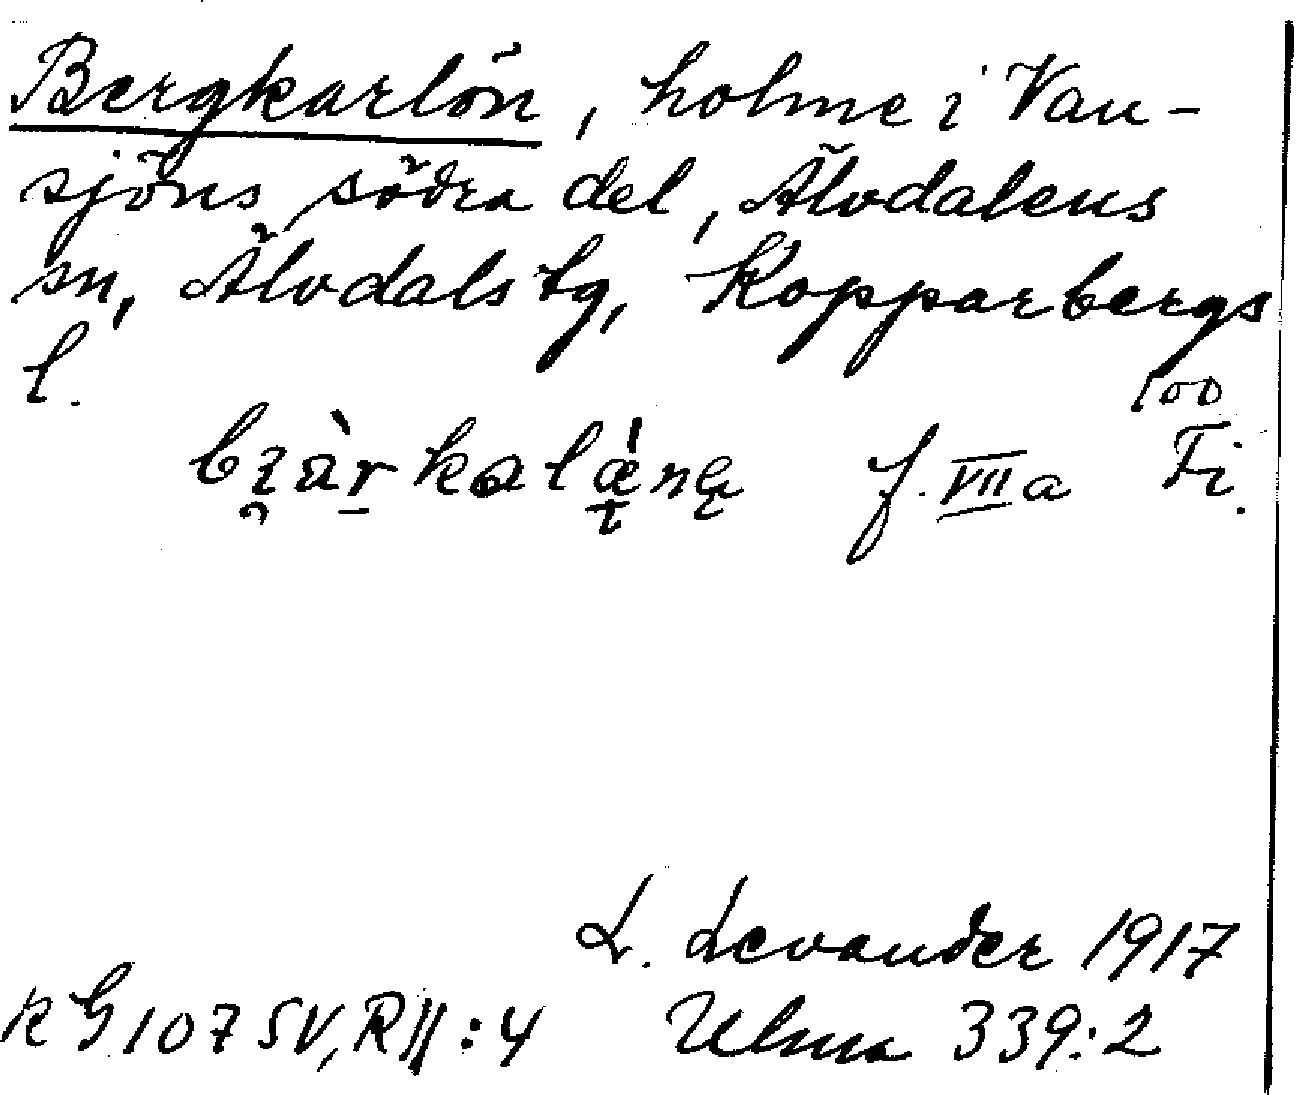 Bergkarlön, holme i Van-
sjöns södra del, Älvdalens
sn, Älvdals tg, Kopparbergs
l.
f. VII a Fi.
L. Levander 1917
RG 107 SV, R II : 4 Ulma 339:2